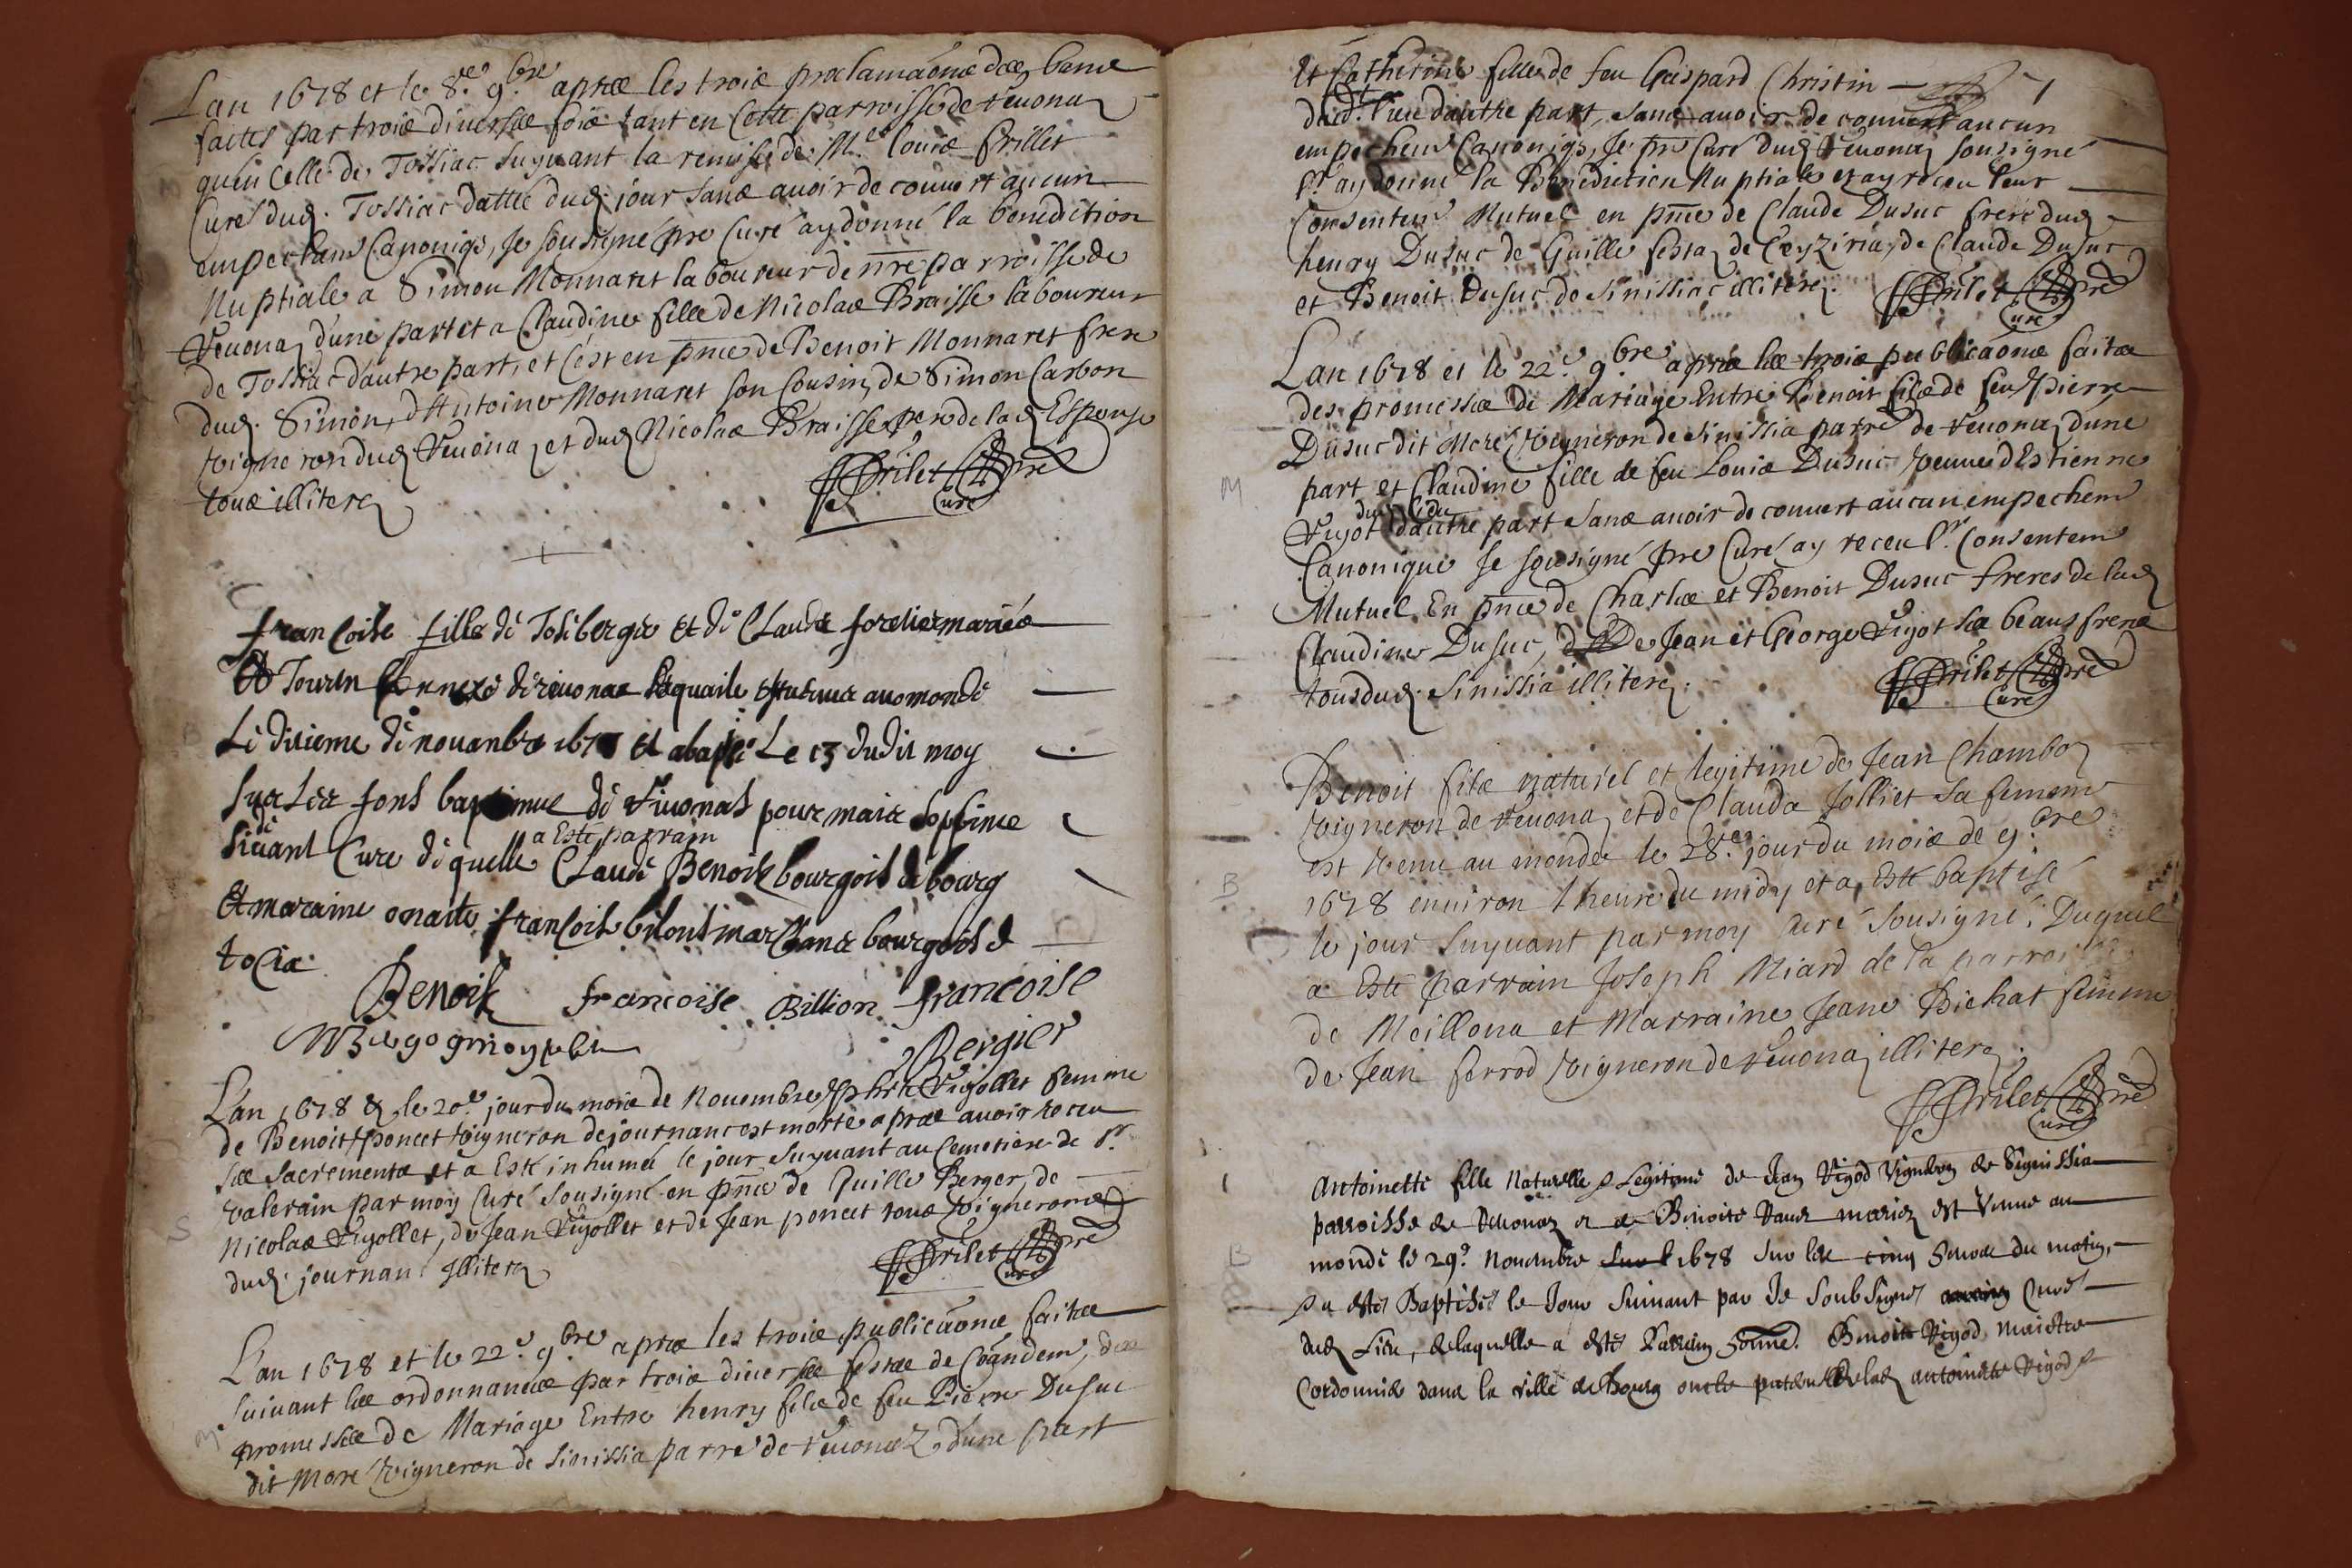 Lan 1678 et le 8.e 9.bre apres les trois proclamaõns des bans
faites par trois diverses fois tant en Cette parroisse de Revona
qu'en Celle de Tossiac suyvant la remise de M.e Louis Frillet
Curé dud. Tossiac dattée dud jour sans avoir decouvert aucun
empecham Canoniqs, Je sousigné pre Curé ay donné la benediction
Nuptiale a Simon Monnaret laboureur de nre parroisse de
Revonaz d'une part et a Claudine fille de Nicolas Braisse laboureur
de Tossiac d'autre part, et C'est en pnce de Benoit Monnaret frere
dud. Simon, d'Antoine Monnaret son Cousin, de Simon Carbon
Vigneron dud Revona, et dud Nicolas Braisse pere de lad Espouse
tous illiterez
Frilet pre
Curé
francoise fille de Bergie et de Claude forelier mariés
Tourin annexe de revonas laquaile est venue au monde
Le disieme de novanbre 167 et a Le 13 du dit moy
Sur Les fons baptimus de rivonas pour maitre
de
sivant Cure de quelle Claude Benoit bourgois de bourg
a Esté parrain
Et maraine onaite francoise bilont marchande bourgoise d
tocia
Benoit francoise Billion francoise
Bergier
L'an 1678 & le 20.e jour du mois de Novembre Vigollet femme
de Benoit Poncet Vigneron de journanc est morte apres avoir receu
ses Sacrements et a Esté inhumée le jour Suyvant au Cemetiere de S.t
Valerain par moy Curé Sousigné en pnce de Guille Berger, de
Nicolas Vigollet, de Jean Vigollet et de Jean poncet tous Vignerons
dud. journan Illiterez
Frilet pre
Curé
L'an 1678 et le 22.e 9.bre apres les trois publicaõns faites
suivant les ordonnances par trois diverses festes de Coãndem, des
promesses de Mariage Entre henry fils de feu Pierre Dusuc
dit Moré Vigneron de Sinissia parre de revonaz d'une part
Et Catherine fille de feu Gaspard Christin
dud. lieu d'autre part, sans avoir decouvert aucun
empechem Canoniqs, Je pre Curé dud Revonaz sousigné
l.r ay donné la Benediction Nuptiale et ay receu leur
Consentem Mutuel en pnce de Claude Dusuc frere dud
henry Dusuc de Guille festaz de Ceyziria, de Claude Dusuc
et Benoit Dusuc de Sinissiac illiterez.
Frilet pre
Curé
Lan 1678 et le 22.e 9.bre apres les trois publicaõns faites
des promesses de Mariage Entre Benoit fils de feu Pierre
Dusuc dit Moré, Vigneron de Sinissia parre de revonaz d'une
part et Claudine fille de feu Louis Dusuc veuve d'Estienne
Vigot d'autre part sans avoir decouvert aucun empechem
Canonique Je sousigné pre Curé ay receu l.r Consentem
Mutuel En pnce de Charles et Benoit Dusuc freres de lad
Claudine Dusuc, de Jean et George Vigot ses beaus freres
tous dud. Sinissia illiterez.
Frilet pre
Curé
Benoit fils naturel et legitime de Jean Chamboz
Vigneron de revonaz et de Clauda Jolliet sa femme
est venu au monde le 28.e jour du mois de 9.bre
1678 environ l'heure du midy et a Esté baptisé
le jour Suyvant par moy Curé Sousigné; Duquel
a Esté parrain Joseph Niard de la parroisse
de Meillona et Marraine Jeane Bichat femme
de Jean ferrod Vigneron de revonaz illiterez.
Frilet pre
Curé
Antoinette fille Naturelle & Legitime de Jean Vigod Vigneron de Signissia
parroisse de Revonaz et de Benoite mariez est Venue au
monde le 29.e Novembre 1678 sur les cinq heures du matin,
& a esté Baptisée le Jour suivant par Je Soubsigné Curé
dud Lieu, de laquelle a esté Parrein honnê. Benoit Vigod Maistre
Cordonnié dans la ville de Bourg oncle paternel de lad antoinette Vigod &